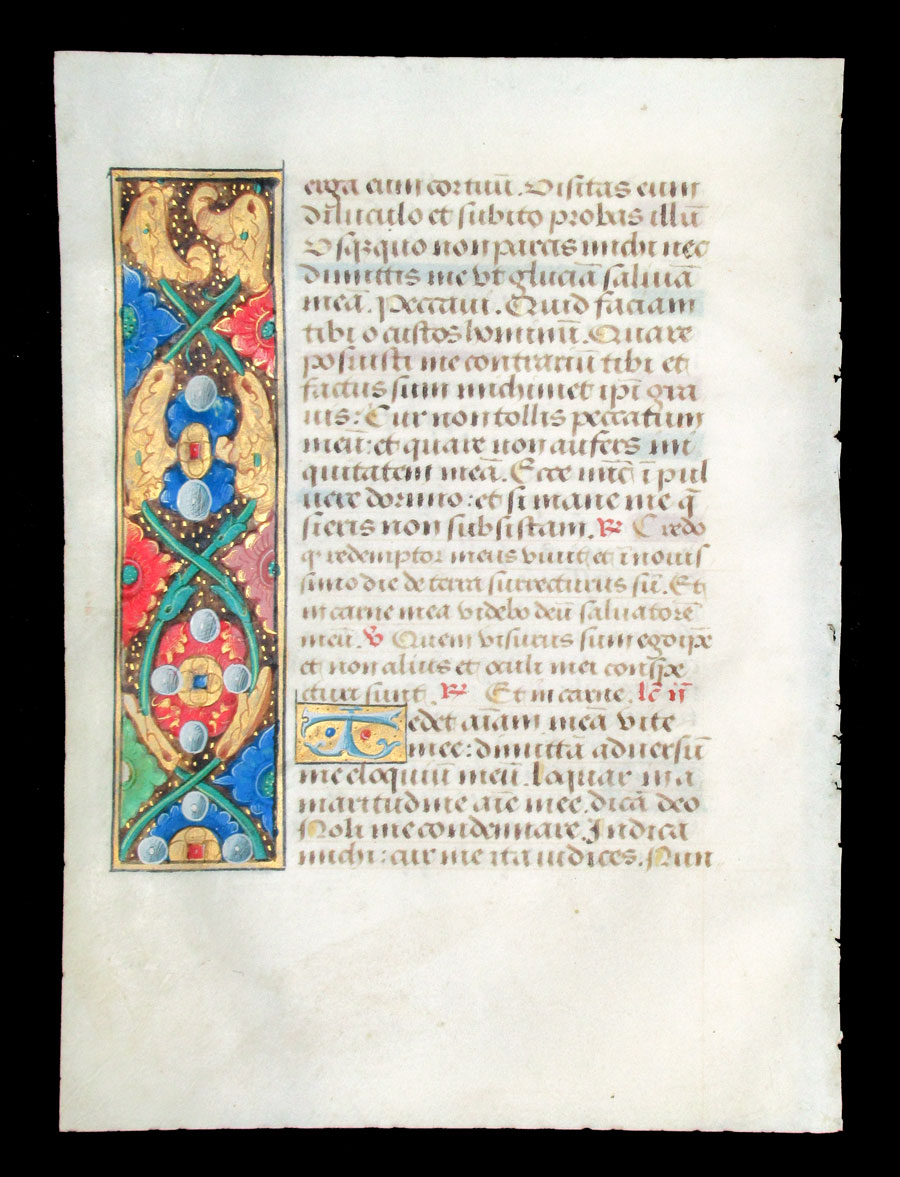 erga eum cor tuū. Visitas eum
diluculo et subito probas illū
Vsq̄quo non parcis michi nec
dimittis me vt gluciā saliuā
meā. Peccaui. Quid faciam
tibi o custos hominū. Quare
posuisti me contrariū tibi et
factus sum michimet ipī gra
uis: Cur non tollis peccatum
meū: et quare non aufers ini
quitatem meā. Ecce nūc ī pul
uere dormio: et si mane me q̄
sieris non subsistam. R̃ Credo
q redemptor meus viuit et ī nouis
simo die de terra surrecturus sū. Et
in carne mea videbo deū saluatorē
meū. V̄ Quem visurus sum ego ipē
et non alius et oculi mei conspe
cturi sunt. R̃ Et in carne. lc̄ ij
Tedet aīam meā vite
mee: dimittā aduersū
me eloquiū meū. loquar in a
maritudine aīe mee. dicā deo
Noli me condemnare. Indica
michi: cur me ita iudices. Nun